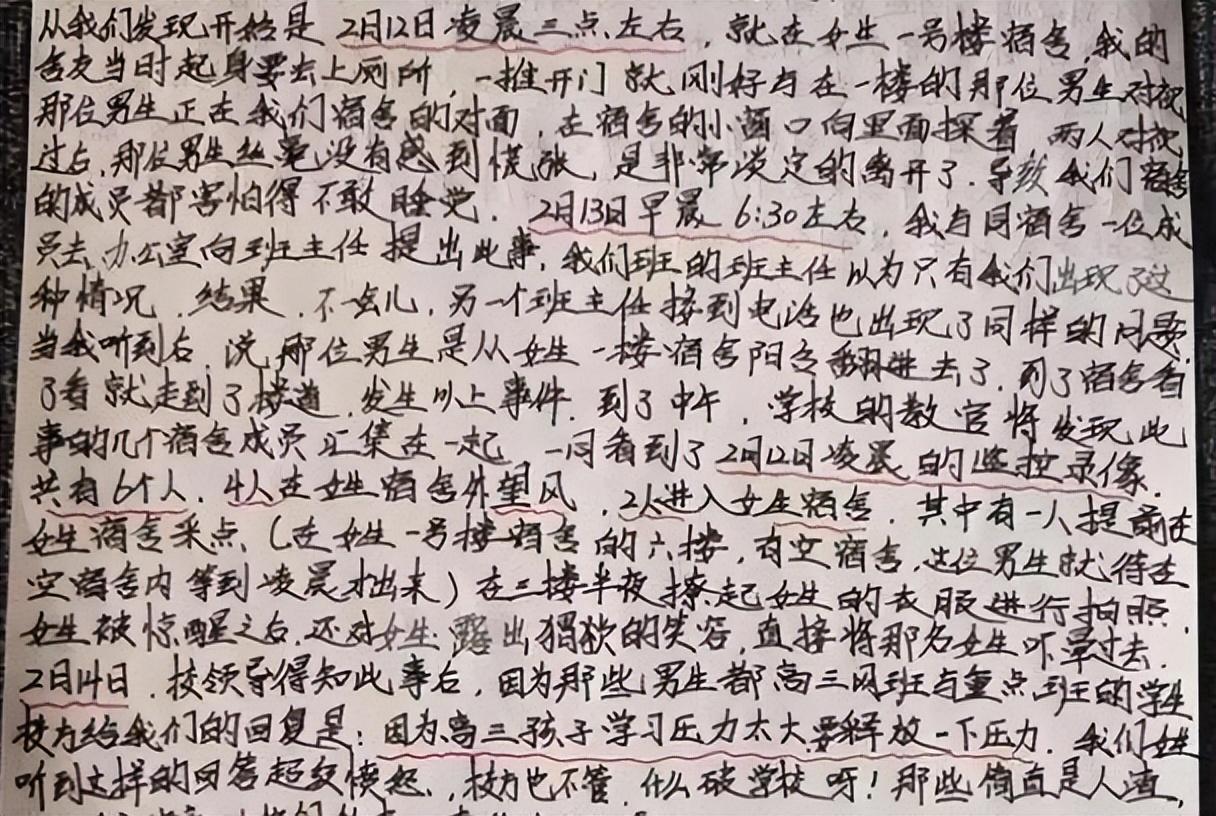 从我们发现开始是 2月12日凌晨三点左右，就在女生一号楼宿舍，我的
舍友当时起身要去上厕所，一推开门就刚好与在一楼的那位男生对视
那位男生正在我们宿舍的对面，在宿舍的小窗口向里面探着，两人对视
过后，那位男生丝毫没有感到慌张，是非常淡定的离开了．导致我们宿舍
的成员都害怕得不敢睡觉．2月13日早晨 6:30左右，我与同宿舍一位成
员去办公室向班主任提出此事，我们班的班主任以为只有我们出现了这
种情况．结果．不一会儿，另一个班主任接到电话也出现了同样的问题．
当我听到后，说那位男生是从女生一楼宿舍阳台翻进去了，到了宿舍看
了看就走到了楼道，发生以上事件．到了中午，学校的教官将发现此
事的几个宿舍成员汇集在一起 一同看到了2月12日凌晨的监控录像．
共有6个人．4人在女生宿舍外望风，2人进入女生宿舍．其中有一人提前在
女生宿舍采点（在女生一号楼宿舍的六楼，有空宿舍，这位男生就待在
空宿舍内等到凌晨才出来）在三楼半夜撩起女生的衣服进行拍照．
女生被惊醒之后，还对女生露出猥琐的笑容，直接将那名女生吓晕过去．
2月14日．校领导得知此事后，因为那些男生都高三网班与重点班的学生
校方给我们的回复是：因为高三孩子学习压力太大要释放一下压力．我们女生
听到这样的回答超级愤怒，校方也不管．什么破学校呀！那些简直是人渣，